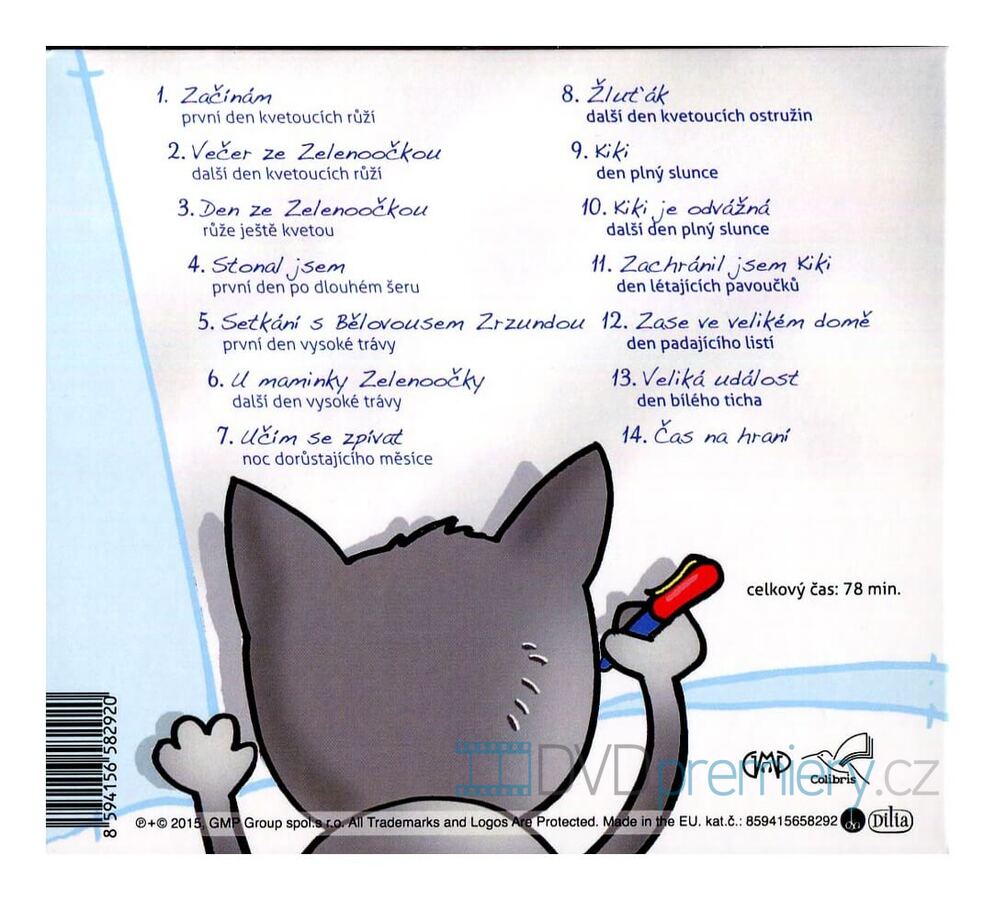 1. Začínám
první den kvetoucích růží
2. Večer ze Zelenoočkou
další den kvetoucích růží
3. Den ze Zelenoočkou
růže ještě kvetou
4. Stonal jsem
první den po dlouhém šeru
5. Setkání s Bělovousem Zrzundou
první den vysoké trávy
6. U maminky Zelenoočky
další den vysoké trávy
7. Učím se zpívat
noc dorůstajícího měsíce
8. Žluťák
další den kvetoucích ostružin
9. Kiki
den plný slunce
10. Kiki je odvážná
další den plný slunce
11. Zachránil jsem Kiki
den létajících pavoučků
12. Zase ve velikém domě
den padajícího listí
13. Veliká událost
den bílého ticha
14. Čas na hraní
celkový čas: 78 min.
8 594156 582920
GMP
Colibris
DVDpremiery.cz
℗+© 2015, GMP Group spol.s r.o. All Trademarks and Logos Are Protected. Made in the EU. kat.č.: 859415658292
Dilia